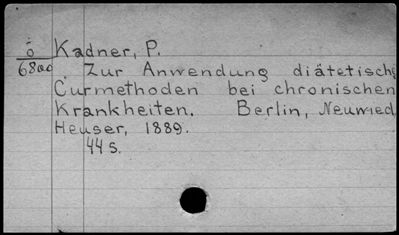 ö Kadner, P.
6800 Zur Anwendung diätetisch
Curmethoden bei chronischen
Krankheiten. Berlin, Neuwied,
Heuser, 1889.
44 s.